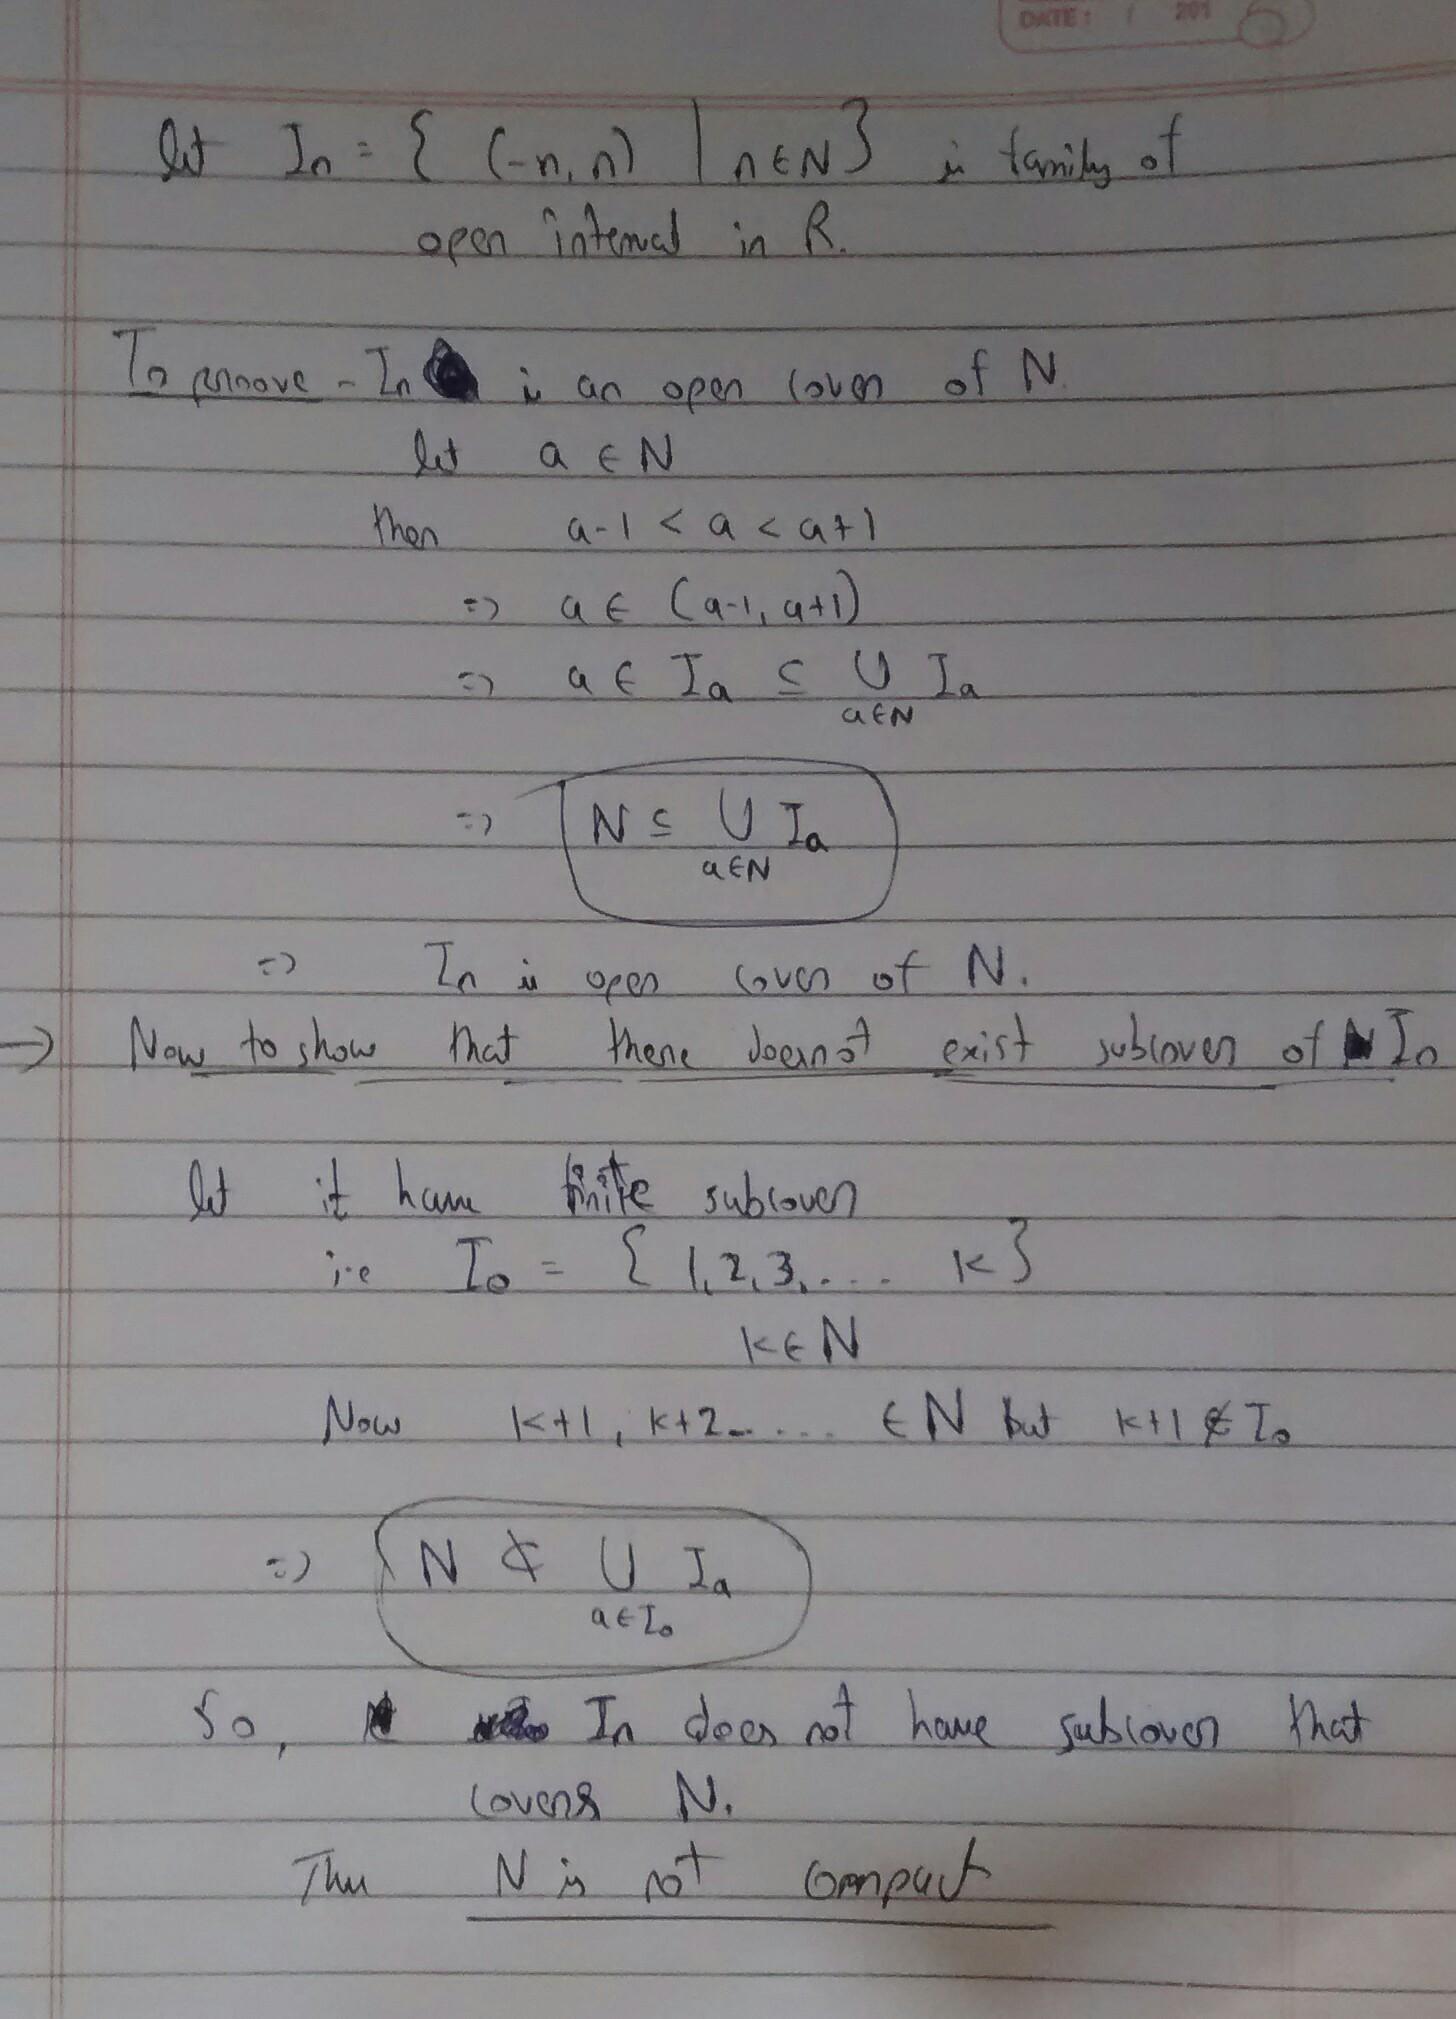 DATE: / 201
let In = { (-n, n) | n ∈ N } is family of
open interval in R.
To proove - In is an open cover of N.
let a ∈ N
then a-1 < a < a+1
=> a ∈ (a-1, a+1)
=> a ∈ Ia ⊆ ∪ Ia
a∈N
=> N ⊆ ∪ Ia
a∈N
=> In is open cover of N.
→ Now to show that there doesnot exist subcover of In
let it have finite subcover
i.e I₀ = { 1, 2, 3, .... k }
k ∈ N
Now k+1, k+2..... ∈ N but k+1 ∉ I₀
=> N ⊄ ∪ Ia
a∈I₀
So, In does not have subcover that
covers N.
Thus N is not compact